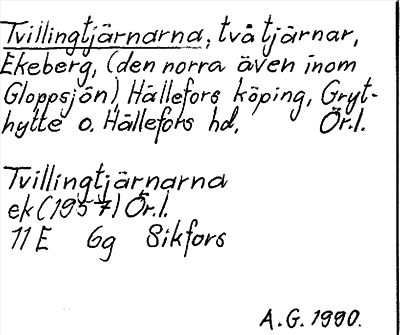 Tvillingtjärnarna, två tjärnar,
Ekeberg, (den norra även inom
Gloppsjön), Hällefors köping, Gryt-
hytte o. Hällefors hd, Ör.l.
Tvillingtjärnarna
ek (1957) Ör.l.
11 E 6g Sikfors
A.G. 1990.